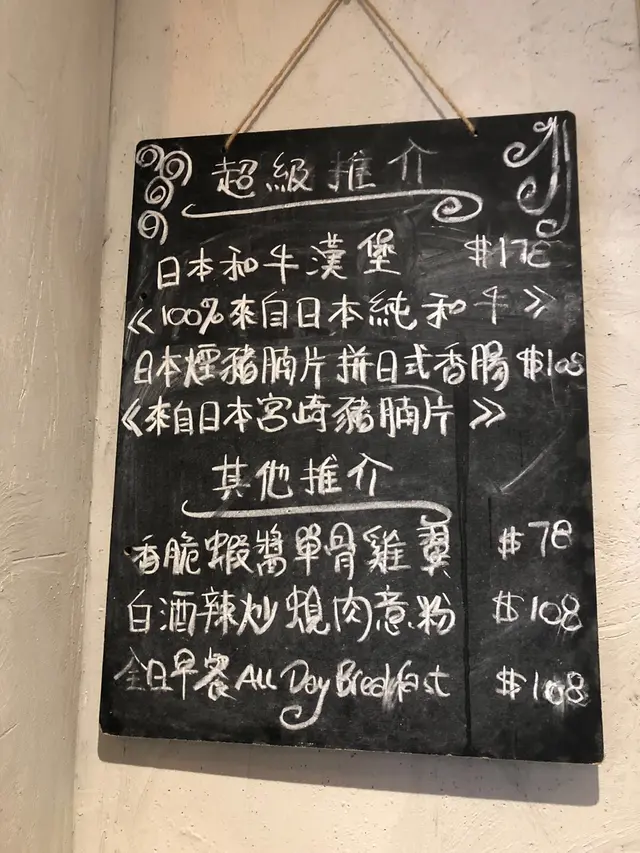 超級推介
日本和牛漢堡 $178
《100%來自日本純和牛》
日本煙豬腩片拼日式香腸 $108
《來自日本宮崎豬腩片》
其他推介
香脆蝦醬單骨雞翼 $78
白酒辣炒蜆肉意粉 $108
全日早餐 All Day Breakfast $168